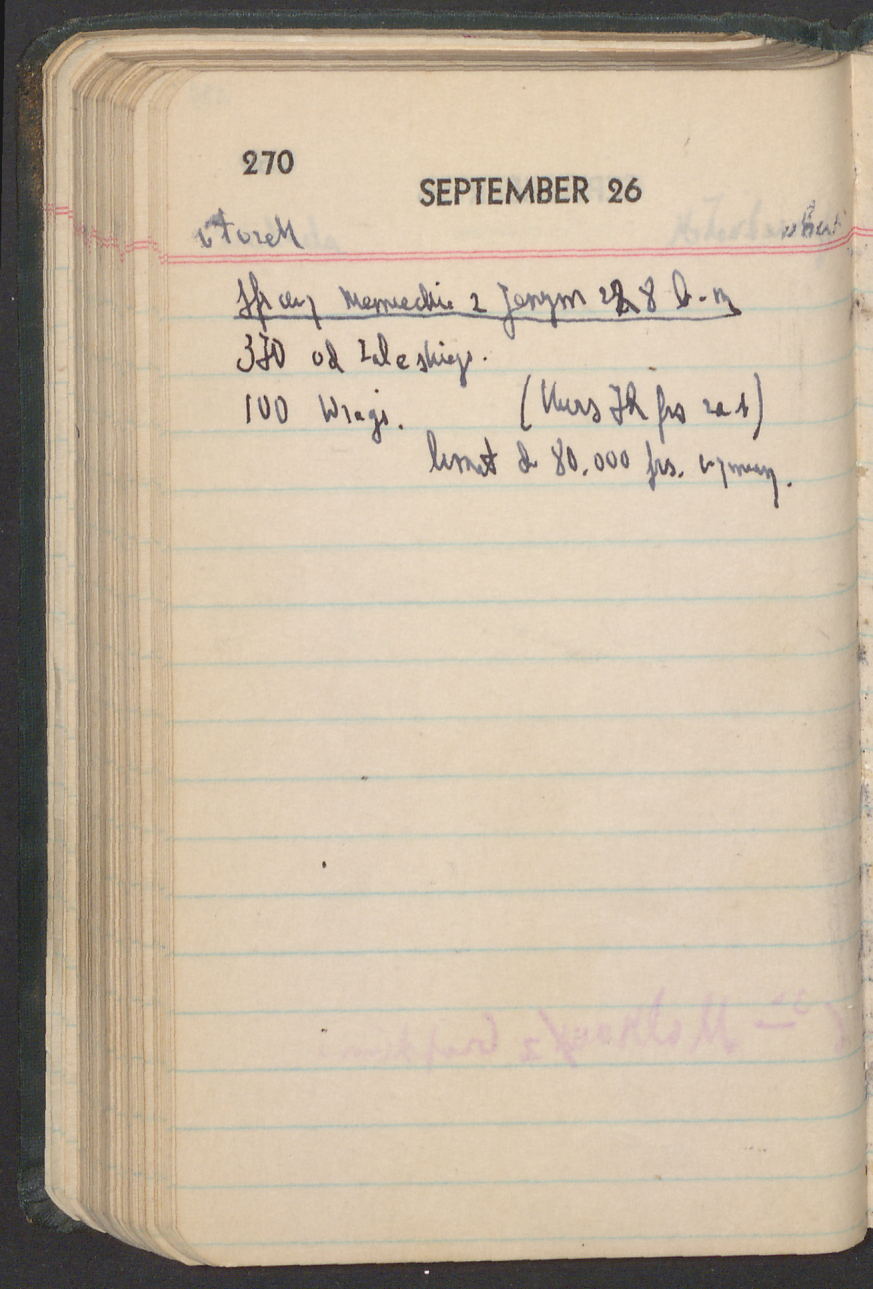 270
SEPTEMBER 26
wtorek
Sprawy niemieckie z Jerzym 8 b.m
370 od Zaleskiego.
100 Wraga. (Kurs frs za 1)
limit do 80.000 frs. wymiany.